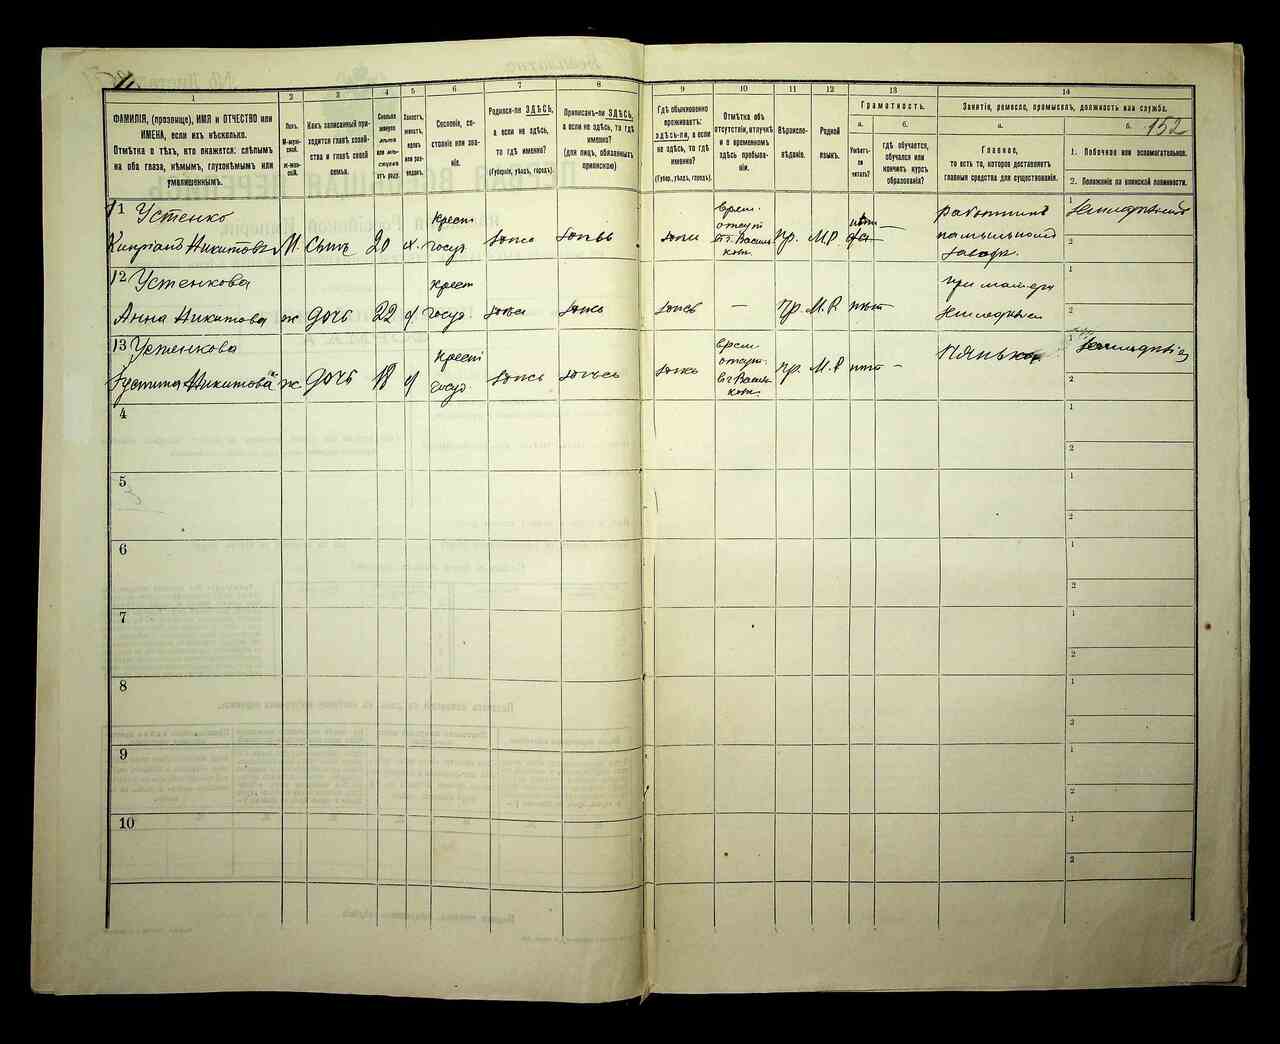 1
2
3
4
5
6
7
8
ФАМИЛІЯ, (прозвище), ИМЯ и ОТЧЕСТВО или
ИМЕНА, если ихъ нѣсколько.
Отмѣтка о тѣхъ, кто окажется: слѣпымъ
на оба глаза, нѣмымъ, глухонѣмымъ или
умалишеннымъ.
Полъ.
М-мужской.
Ж-женскій.
Какъ записанный приходится главѣ хозяйства и главѣ своей семьи.
Сколько минуло лѣтъ или мѣсяцевъ отъ роду.
Холостъ, женатъ, вдовъ или разведенъ.
Сословіе, состояніе или званіе.
Родился-ли ЗДѢСЬ,
а если не здѣсь,
то гдѣ именно?
(Губернія, уѣздъ, городъ).
Приписанъ-ли ЗДѢСЬ,
а если не здѣсь, то гдѣ
именно?
(для лицъ, обязанныхъ
припискою)
9
10
11
12
13
14
Гдѣ обыкновенно
проживаетъ:
здѣсь-ли, а если
не здѣсь, то гдѣ
именно?
(Губер., уѣздъ, городъ).
Отмѣтка объ
отсутствіи, отлучкѣ
и о временномъ
здѣсь пребываніи.
Вѣроисповѣданіе.
Родной
языкъ.
Грамотность.
а.
Умѣетъ-ли
читать?
б.
гдѣ обучается,
обучался или
кончилъ курсъ
образованія?
Занятіе, ремесло, промыселъ, должность или служба.
а.
Главное,
то есть то, которое доставляетъ
главныя средства для существованія.
б. 152
1. Побочное или вспомогательное.
2. Положеніе по воинской повинности.
11 Устенко
Кипріанъ Никитовъ М. Сынъ 20 х. крест. госуд. здѣсь здѣсь здѣсь
врем. отсут. Пр. М.Р. нѣтъ — работникъ
1
2
12 Устенкова
Анна Никитова ж дочь 22 д. крест. госуд. здѣсь здѣсь здѣсь — Пр. М.Р. нѣтъ — при матери
1
2
13 Устенкова
Іустина Никитова ж дочь 18 д крест. госуд. здѣсь здѣсь здѣсь
врем. отсут. Пр. М.Р нѣтъ —
1
2
4
1
2
5
1
2
6
1
2
7
1
2
8
1
2
9
1
2
10
1
2